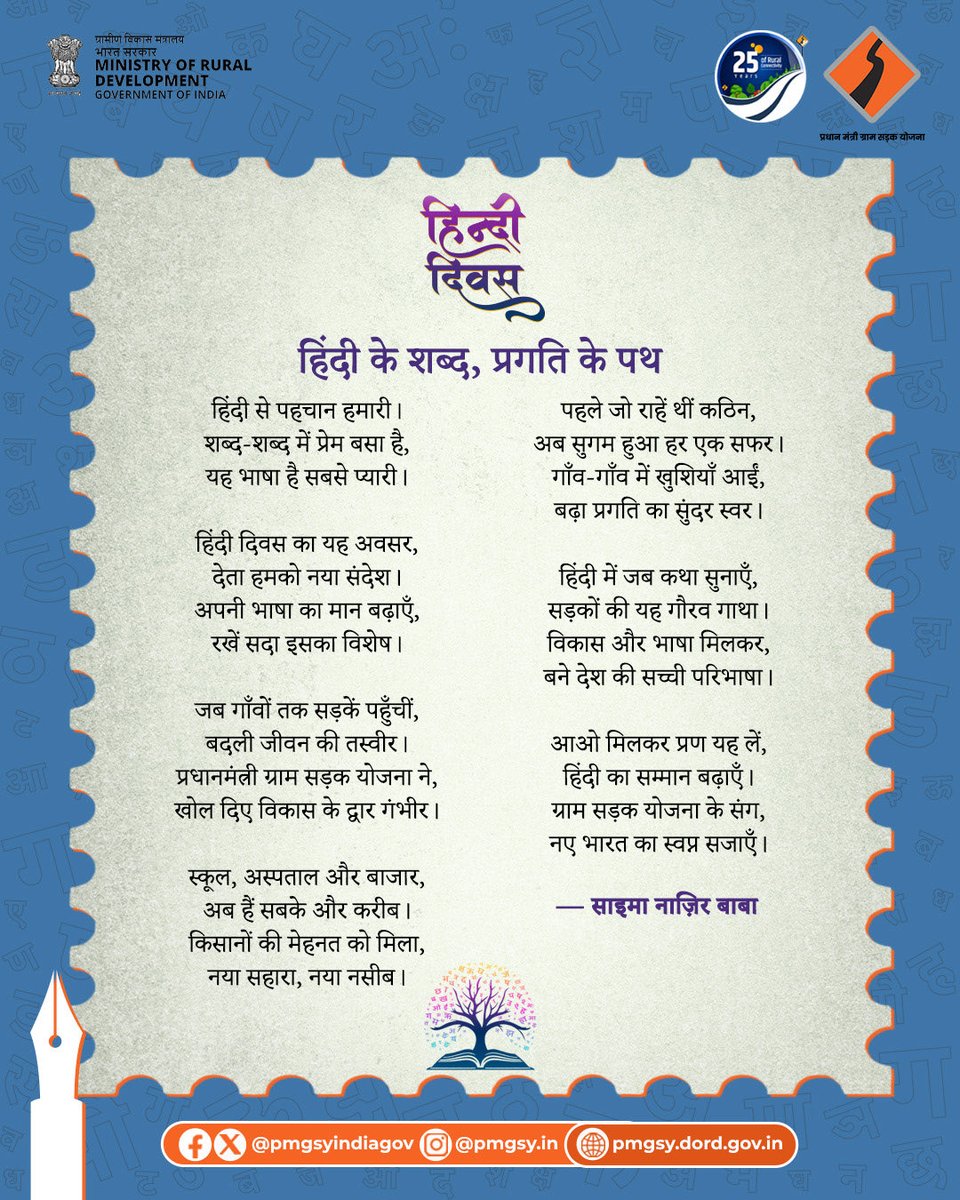 ग्रामीण विकास मंत्रालय
भारत सरकार
MINISTRY OF RURAL
DEVELOPMENT
GOVERNMENT OF INDIA
25 of Rural
Years Connectivity
प्रधान मंत्री ग्राम सड़क योजना
हिन्दी
दिवस
हिंदी के शब्द, प्रगति के पथ
हिंदी से पहचान हमारी।
शब्द-शब्द में प्रेम बसा है,
यह भाषा है सबसे प्यारी।
हिंदी दिवस का यह अवसर,
देता हमको नया संदेश।
अपनी भाषा का मान बढ़ाएँ,
रखें सदा इसका विशेष।
जब गाँवों तक सड़कें पहुँचीं,
बदली जीवन की तस्वीर।
प्रधानमंत्री ग्राम सड़क योजना ने,
खोल दिए विकास के द्वार गंभीर।
स्कूल, अस्पताल और बाजार,
अब हैं सबके और करीब।
किसानों की मेहनत को मिला,
नया सहारा, नया नसीब।
पहले जो राहें थीं कठिन,
अब सुगम हुआ हर एक सफर।
गाँव-गाँव में खुशियाँ आईं,
बढ़ा प्रगति का सुंदर स्वर।
हिंदी में जब कथा सुनाएँ,
सड़कों की यह गौरव गाथा।
विकास और भाषा मिलकर,
बने देश की सच्ची परिभाषा।
आओ मिलकर प्रण यह लें,
हिंदी का सम्मान बढ़ाएँ।
ग्राम सड़क योजना के संग,
नए भारत का स्वप्न सजाएँ।
— साइमा नाज़िर बाबा
@pmgsyindiagov @pmgsy.in pmgsy.dord.gov.in